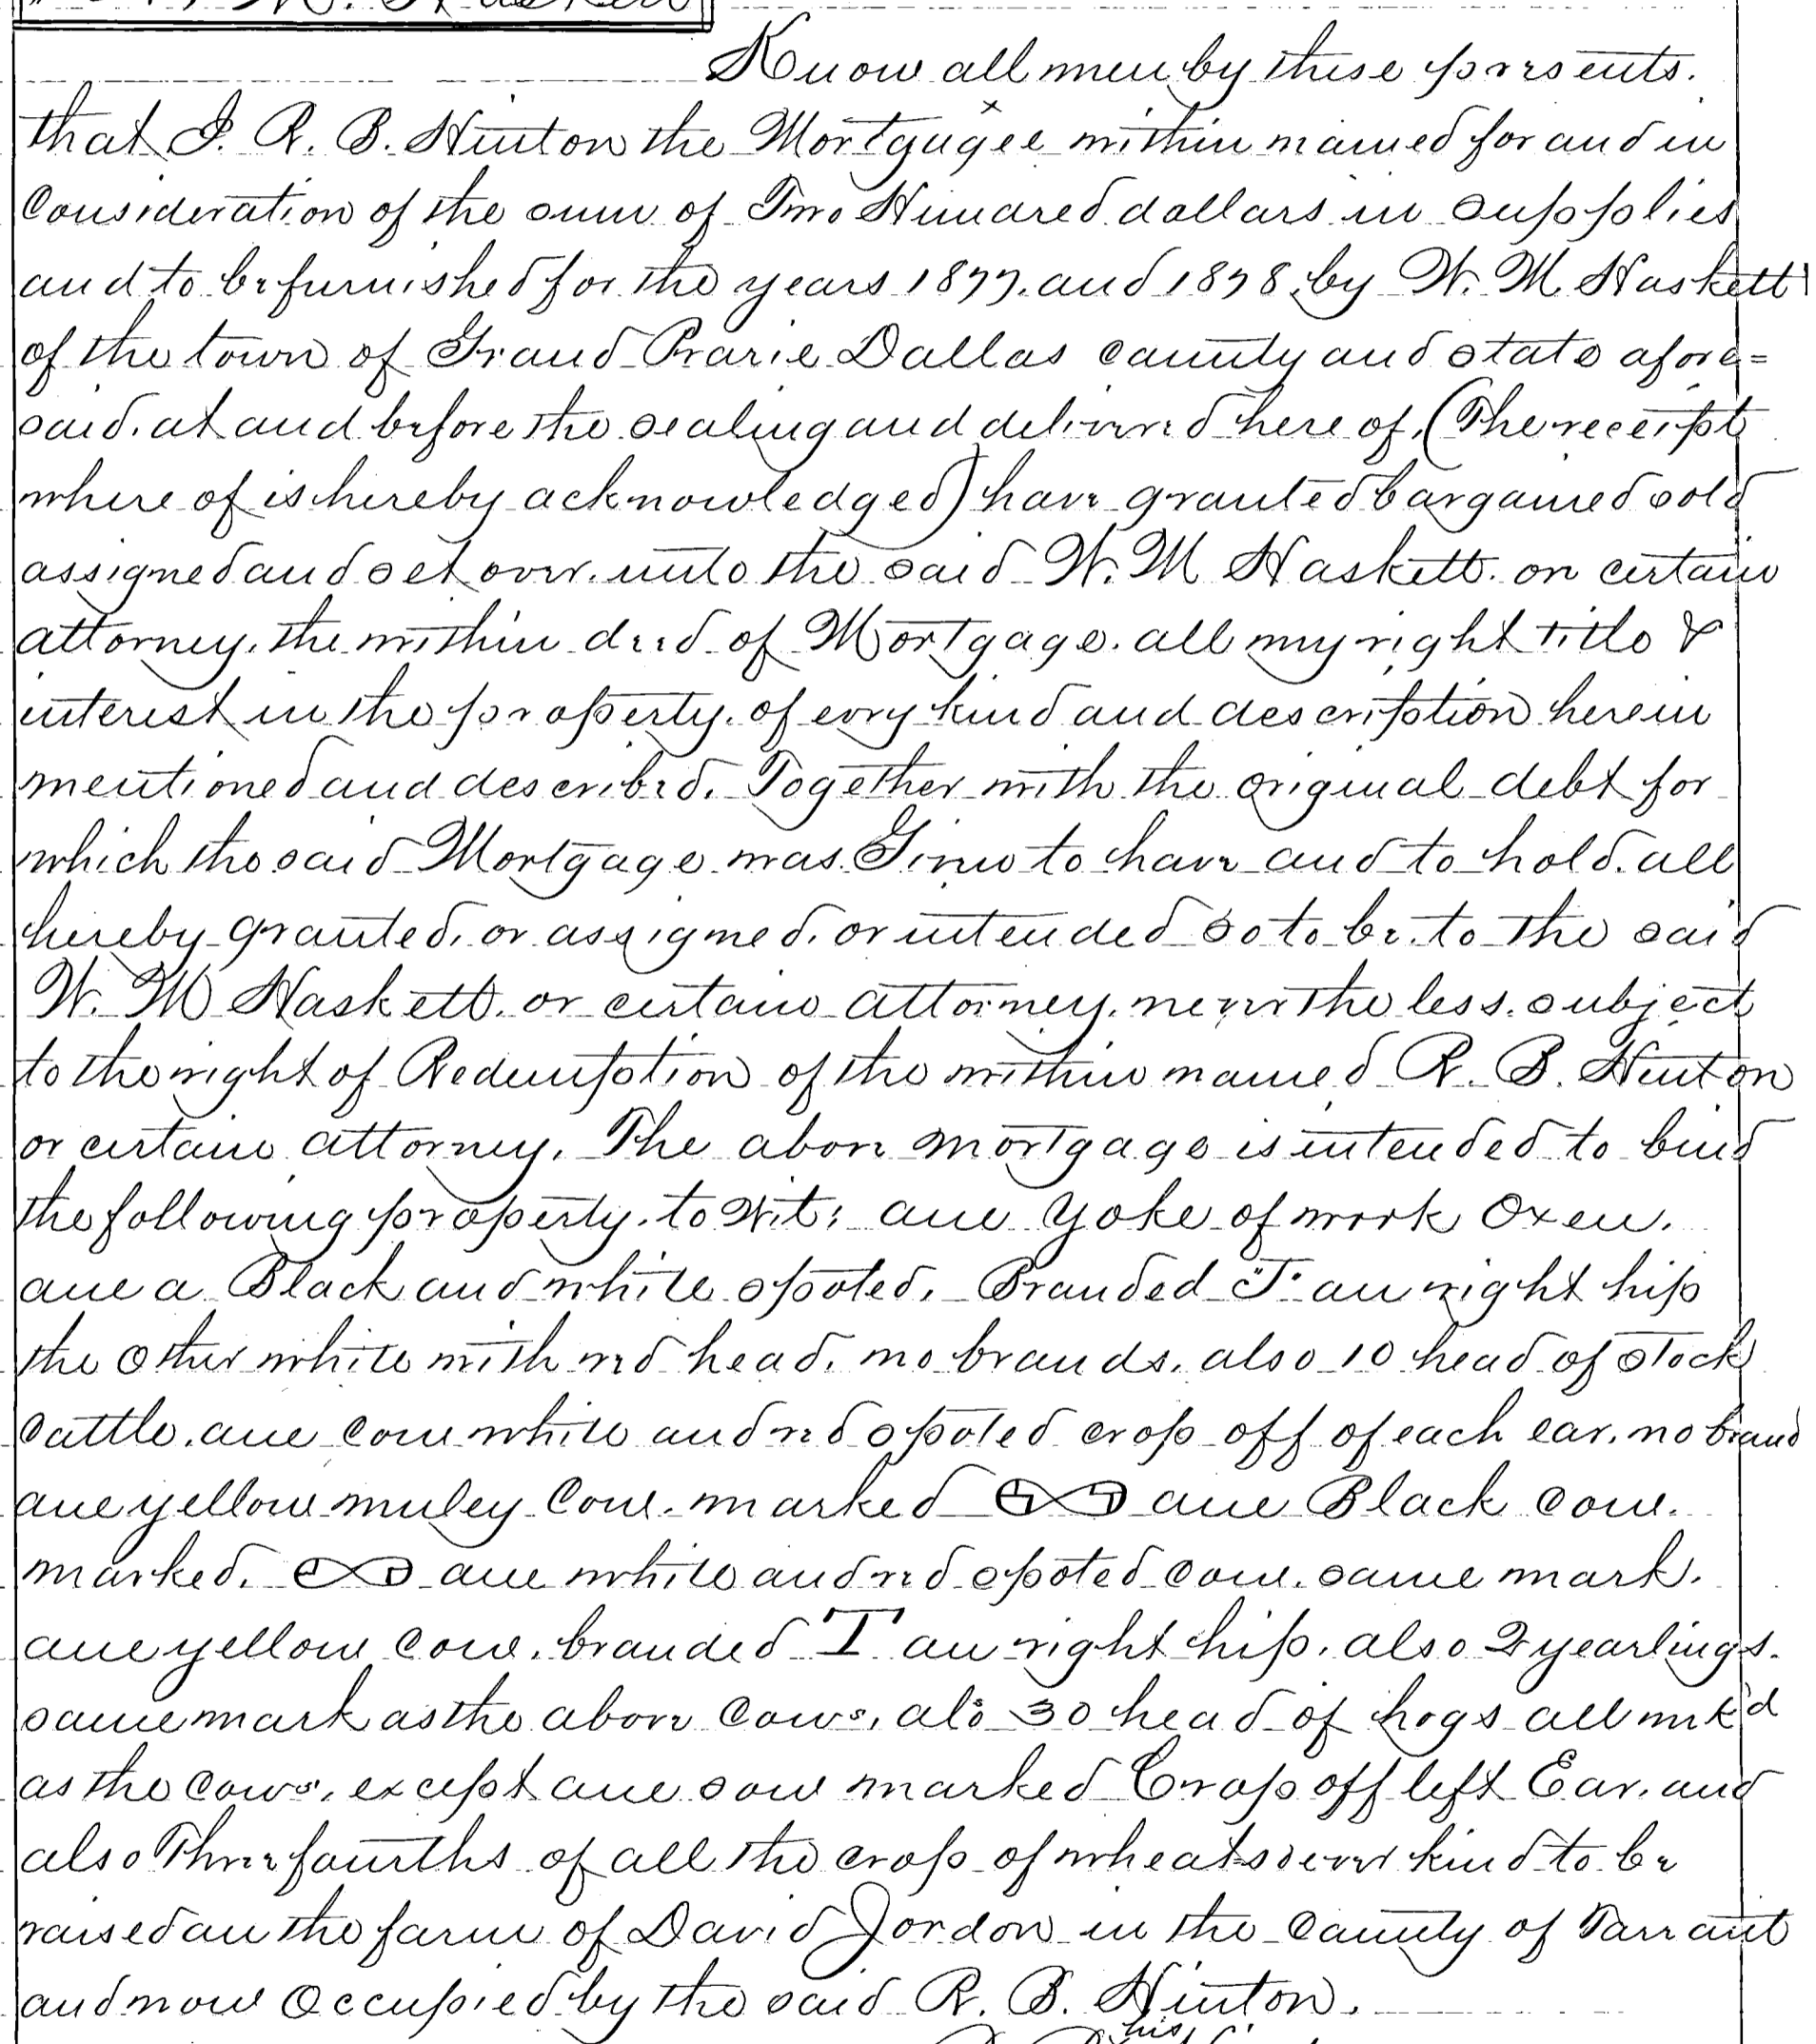 W. M. Haskett
Know all men by these presents.
that I. R. B. Hinton the Mortgagee within named for and in
Consideration of the sum of Two Hundred dollars in supplies
and to be furnished for the years 1877. and 1878 by W. M. Haskett
of the town of Grand Prarie Dallas county and state afore=
said. at and before the sealing and delivered here of, (The receipt
where of is hereby acknowledged) have granted bargained sold
assigned and set over. unto the said W. M Haskett. on certain
attorney, the within deed of Mortgage. all my right title &
interest in the property. of evry kind and description herein
mentioned and described. Together with the original debt for
which the said Mortgage was Given to have and to hold. all
hereby granted, or assigned, or intended so to be. to the said
W. M Haskett. or certain attorney. never the less. subject
to the right of Redemption of the within named R. B. Hinton
or certain attorney. The above mortgage is intended to bind
the following property. to Wit: one yoke of work Oxen.
one a Black and white spoted. Branded "T" on right hip
the other white with red head. no brands. also 10 head of stock
Cattle. one cow white and red spoted crop off of each ear. no brand
one yellow muley Cow. marked one Black cow.
marked. one white and red spoted cow. same mark.
one yellow cow. branded T on right hip. also 2 yearlings.
same mark as the above Cows, also 30 head of hogs all mk'd
as the cows. except one sow marked Crop off left Ear. and
also Three fourths of all the crop of wheatsoever kind to be
raised on the farm of David Jordon in the County of Tarrant
and now occupied by the said R. B. Hinton.
his